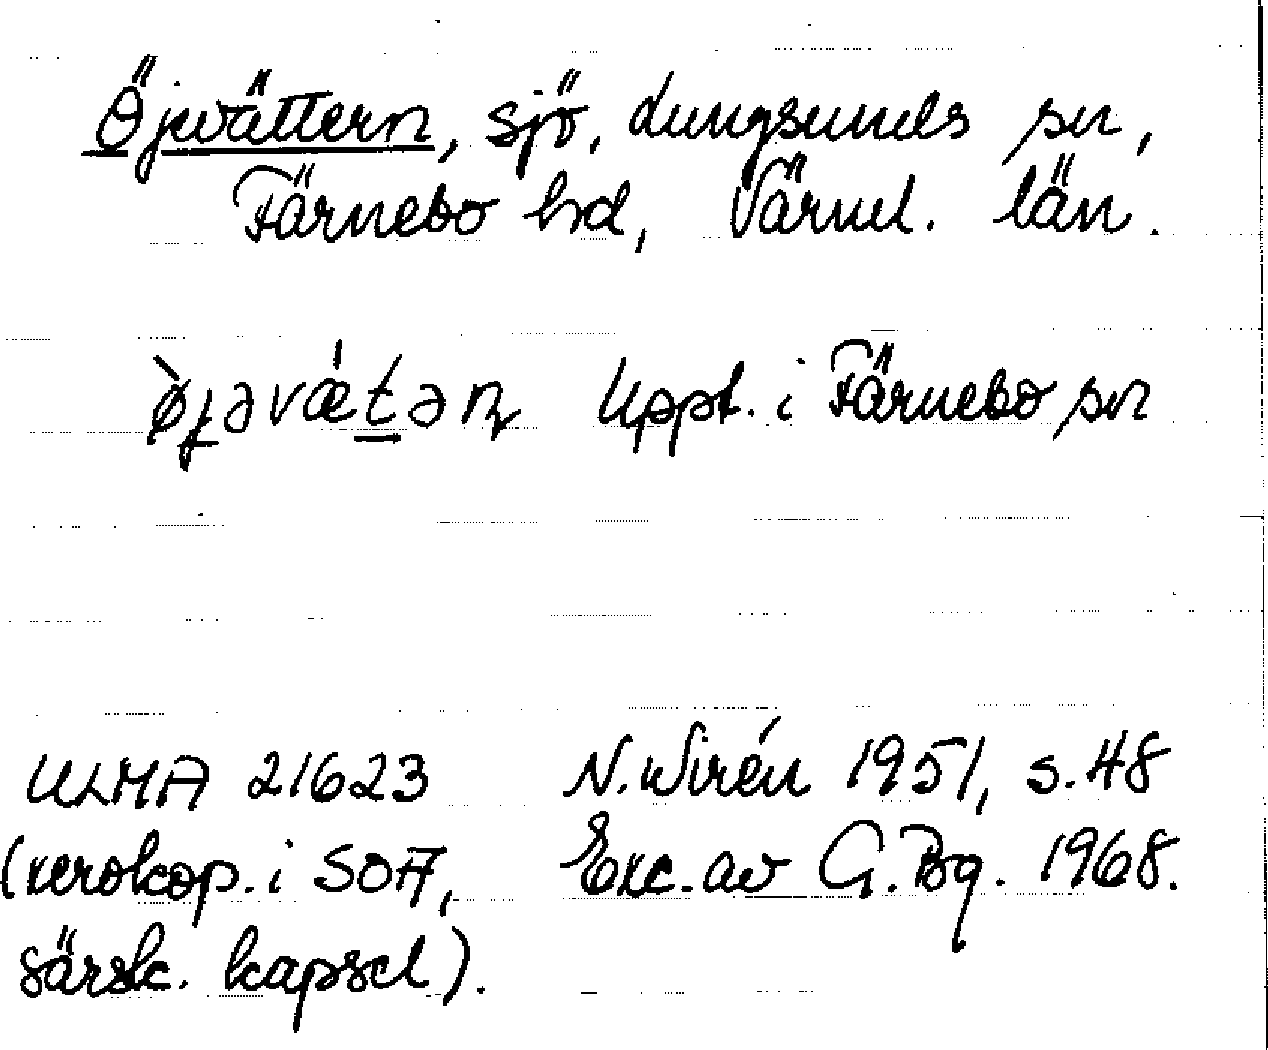 Öjevättern, sjö, Lungsunds sn,
Färnebo hd, Värml. län.
Uppt. i Färnebo sn
ULMA 21623 N. Wirén 1951, s. 48
(xerokop. i SOA, Exc. av G. Bg. 1968.
särsk. kapsel).